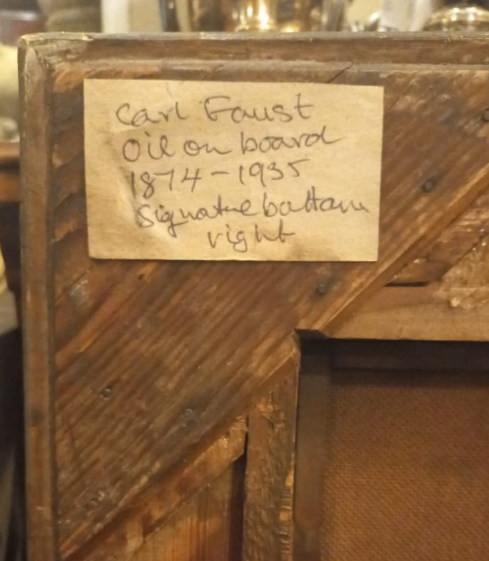 Carl Faust
Oil on board
1874-1935
Signature bottom
right